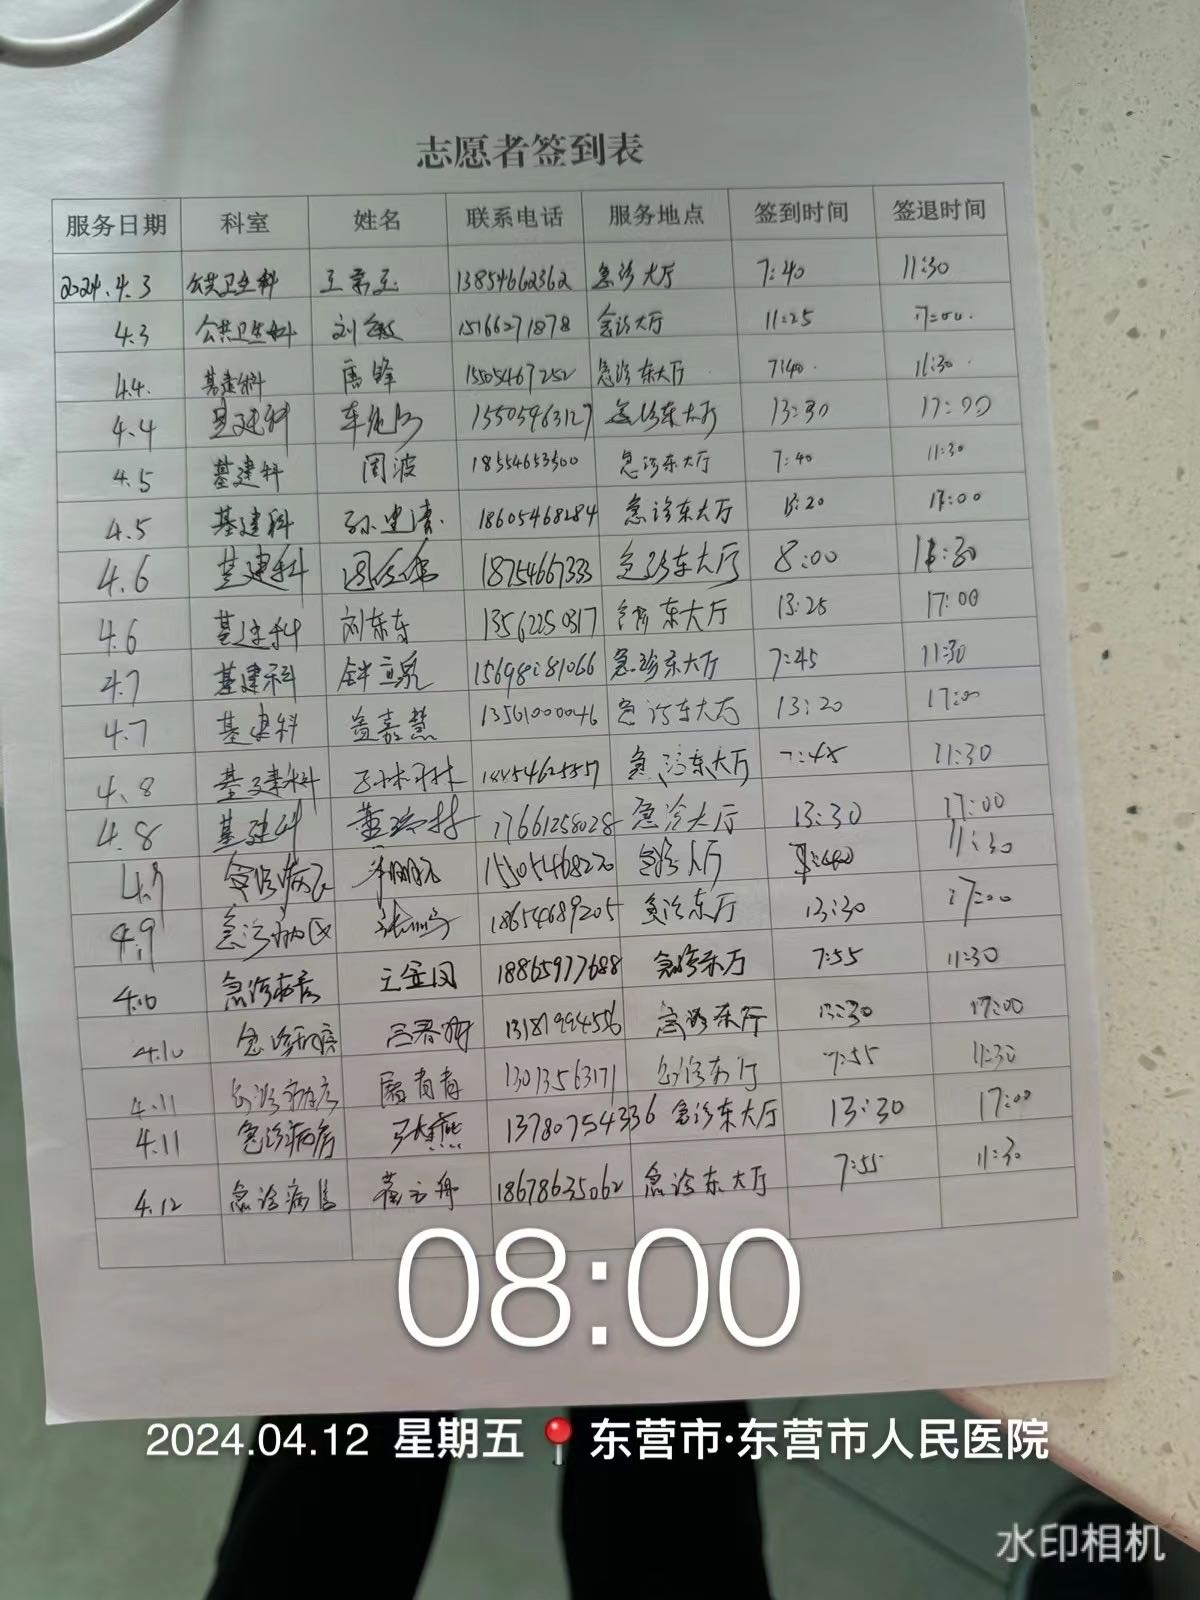 志愿者签到表
服务日期 科室 姓名 联系电话 服务地点 签到时间 签退时间
2024.4.3 公共卫生科 13854662362 急诊大厅 7:40 11:30
4.3 公共卫生科 刘敏 15166271878 急诊大厅 11:25 17:00.
4.4. 基建科 唐锋 15505467252 急诊东大厅 7:40. 11:30.
4.4 基建科 15505463127 急诊东大厅 13:30 17:00
4.5 基建科 周波 18554653500 急诊东大厅 7:40 11:30
4.5 基建科 孙建涛 18605468284 急诊东大厅 13:20 17:00
4.6 基建科 18754667333 急诊东大厅 8:00 :30
4.6 基建科 刘东东 13562250317 急诊东大厅 13:25 17:00
4.7 基建科 15698181066 急诊东大厅 7:45 11:30
4.7 基建科 孟嘉慧 13561000046 急诊东大厅 13:20 17:00
4.8 基建科 急诊东大厅 7:45 11:30
4.8 基建科 17661258028 急诊大厅 13:30 17:00
4.9 15505468270 急诊大厅 11:30
4.9 急诊病区 18654689205 急诊东厅 13:30 17:00
4.10 急诊病房 王金凤 18865977688 急诊东厅 7:55 11:30
4.10 急诊病房 13181994556 急诊东厅 13:30 17:00
4.11 急诊病房 13013563171 急诊东厅 7:55 11:30
4.11 急诊病房 13780754336 急诊东大厅 13:30 17:00
4.12 急诊病房 18678635062 急诊东大厅 7:55 11:30
08:00
2024.04.12 星期五 东营市·东营市人民医院
水印相机